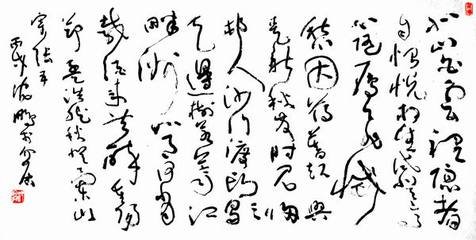 北山白云里隐者
自怡悦相望登高
心随雁飞灭
愁因薄暮起兴
是清秋发时见归
村人沙行渡头歇
天边树若荠江
畔洲如月何当
载酒来共醉重阳
节孟浩然秋登兰山
寄张五
丙戌